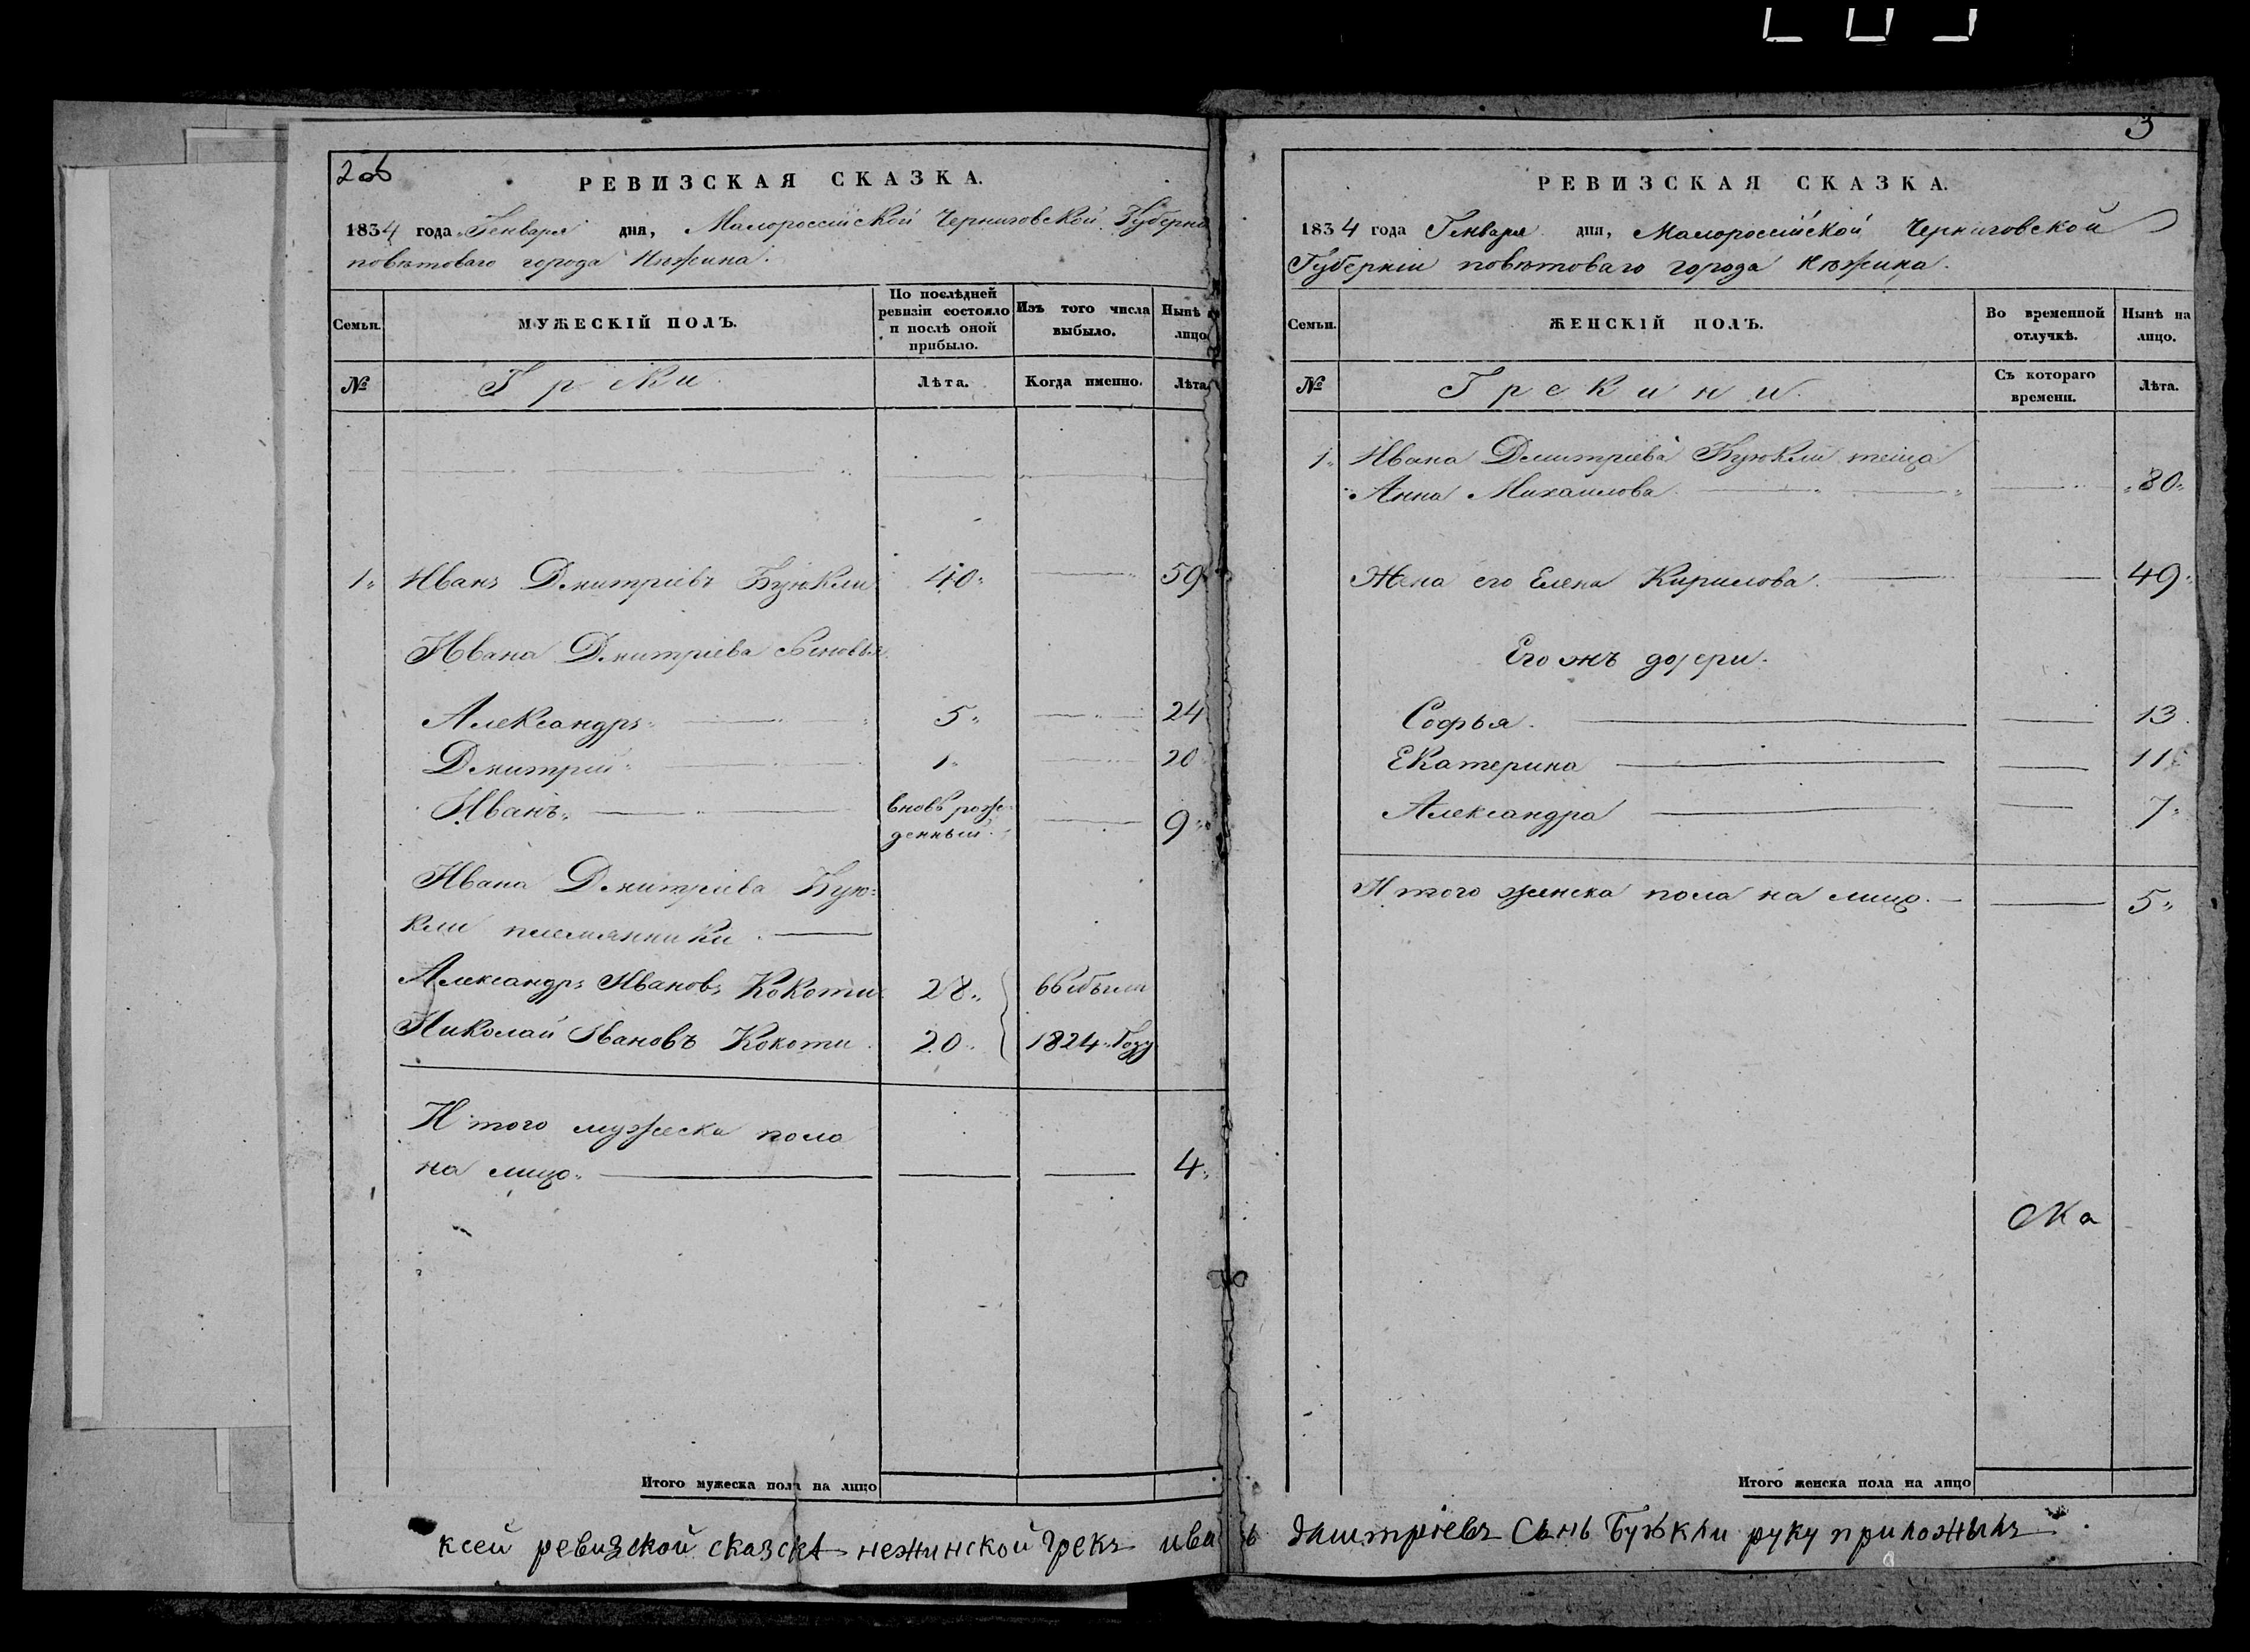 2об
РЕВИЗСКАЯ СКАЗКА.
1834 года Генваря дня, Малороссійской Черниговской Губерніи
повѣтоваго города Нѣжина.
Семьи.
МУЖЕСКІЙ ПОЛЪ.
По послѣдней ревизіи состояло и послѣ оной прибыло.
Изъ того числа выбыло.
Нынѣ лицо
№
Греки.
Лѣта.
Когда именно.
Лѣта
1. Иванъ Дмитріевъ Буюкли 40. 59
Ивана Дмитріева Сыновья
Александръ 5. 24
Дмитрій 1. 20
Иванъ. вновь рож= 9.
денный.
Ивана Дмитріева Бую=
кли племянники.
Александръ Ивановъ Кокоти 28. выбыли
Николай Ивановъ Кокоти 20. 1824 Году
Итого мужеска пола
на лицо. 4.
Итого мужеска пола на лицо
3
РЕВИЗСКАЯ СКАЗКА.
1834 года Генваря дня, Малороссійской Черниговской
Губерніи повѣтоваго города Нѣжина.
Семьи.
ЖЕНСКІЙ ПОЛЪ.
Во временной отлучкѣ.
Нынѣ на лицо.
№
Грекини.
Съ котораго времени.
Лѣта.
1. Ивана Дмитріева Буюкли теща
Анна Михаилова 80.
Жена его Елена Кирилова 49.
Его жъ дочери.
Софья. 13.
Екатерина 11.
Александра 7.
Итого женска пола на лицо. 5.
ска
Итого женска пола на лицо
ксей ревизской сказскѣ нежинской грекъ ива ъ дмитріевъ Сынъ Буюкли руку приложылъ